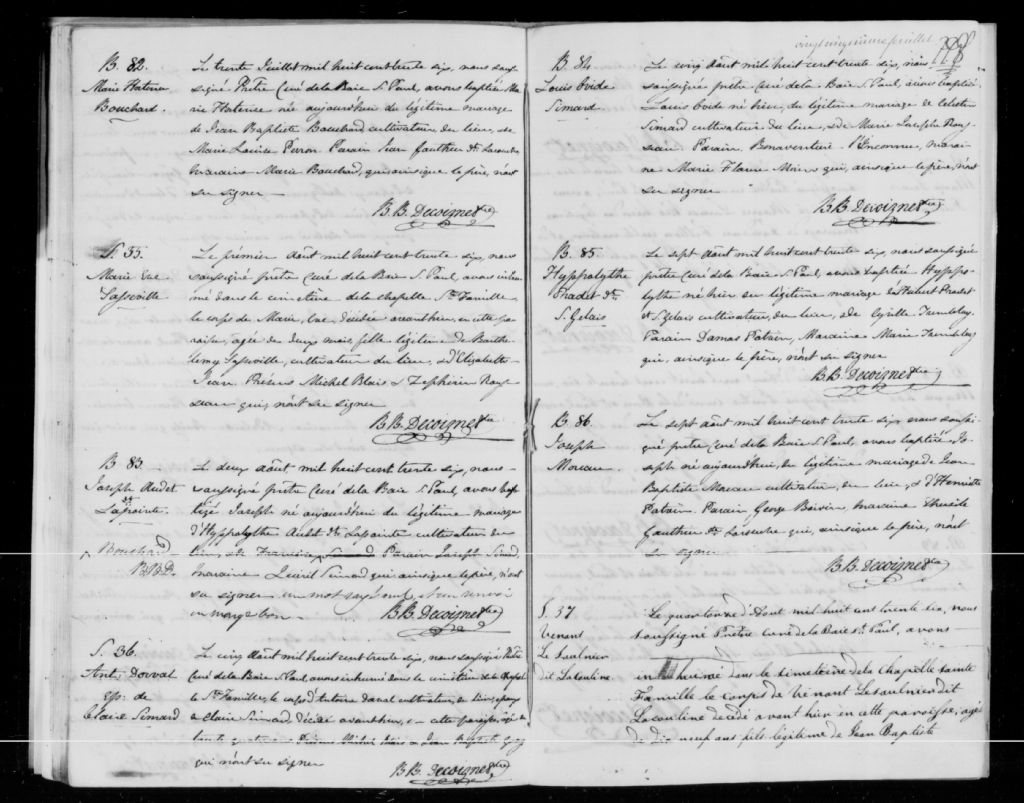 B. 82.
Marie Hortence
Bouchard.
Le trente Juillet mil huit cent trente six, nous sous-
signé Prêtre Curé de la Baie S. Paul, avons baptisé Ma
rie Hortence née aujourd'hui du légitime mariage
de Jean Baptiste Bouchard cultivateur du lieu, et de
Marie Louise Perron. Parain Jean Gauthier dt Larouche
maraine Marie Bouchard, qui ainsi que le père, n'ont
su signer —
B. B. Decoigne ptre
S. 35.
Marie Eve
Lasseville
Le prémier Août mil huit cent trente six, nous
soussigné prêtre Curé de la Baie S. Paul, avons inhu
mé dans le cimetière de la chapelle Ste Famille
le corps de Marie Eve décédée avant hier, en cette pa
roisse, agée de deux mois fille légitime de Barthe
lemy Lasseville, cultivateur du lieu, & d'Elizabeth
Jean. Présens Michel Blais & Zephirin Rous
seau qui n'ont su signer
B. B. Decoigne ptre
B. 83.
Joseph Audet
dt
Lapointe.
Bouchard
B.B.D.
Le deux Août mil huit cent trente six, nous
soussigné prêtre Curé de la Baie S. Paul, avons bap
tizé Joseph né aujourd'hui du légitime mariage
d'Hyppolythe Audet dt Lapointe cultivateur du
lieu, & de Françoise Simard Parain Joseph Simard
maraine Simard qui ainsi que le père, n'ont
su signer un mot rayé nul & un renvoi
en marge bon —
B. B. Decoigne ptre
S. 36.
Ant. Dorval
ep: de
Claire Simard
Le cinq Août mil huit cent trente six, nous soussigné Prêtre
Curé de la Baie S. Paul avons inhumé dans le cimetière de la Chapelle
le Ste Famille, le corps d'Antoine Dorval cultivateur, du lieu, epoux
de Claire Simard décédé avant hier, en cette paroisse, agé de
trente quatre Présens Michel Blais & Jean Baptiste
qui n'ont su signer
B. B. Decoigne ptre
vingt cinquième feuillet
B. 84
Louis Ovide
Simard.
Le cinq Août mil huit cent trente six, nous
soussigné prêtre Curé de la Baie S. Paul, avons baptisé
Louis Ovide né hier, du légitime mariage de
Simard cultivateur du lieu, & de Marie Josephe Rous
seau Parain Bonaventure l'Inconnu, marai
ne Marie Flavie qui, ainsi que le père, n'ont
su signer
B. B. Decoigne ptre
B. 85
Hyppolythe
Pradet dt
S. Gelais
Le sept Août mil huit cent trente six, nous soussigné
prêtre Curé de la Baie S. Paul, avons baptisé Hyppo
lythe né hier du légitime mariage de Hubert Pradet
dt S. Gelais cultivateur, du lieu, & de Cyrille Tremblay.
Parain Damas Potvin, Maraine Marie Tremblay
qui, ainsi que le père, n'ont su signer
B. B. Decoigne ptre
B. 86.
Joseph
Moreau
Le sept Août mil huit cent trente six nous soussi
gné prêtre Curé de la Baie S. Paul, avons baptisé Jo
seph né aujourd'hui, du légitime mariage de Jean
Baptiste Moreau cultivateur, du lieu, & d'Henriette
Potvin. Parain George Boivin maraine Thersile
Gauthier dt Larouche qui, ainsi que le père, n'ont
su signer
B. B. Decoigne ptre
S. 37
Venant
Le Saulnier
dit Lacouline
Le quatorze d'Aout mil huit cent trente six, nous
soussigné Prêtre curé de la Baie St. Paul, avons
inhumé dans le cimetière de la Chapelle Sainte
Famille le Corps de Venant Lesaulnier dit
Lacouline decedé avant hier en cette paroisse, agé
de dix neuf ans fils légitime de Jean Baptiste